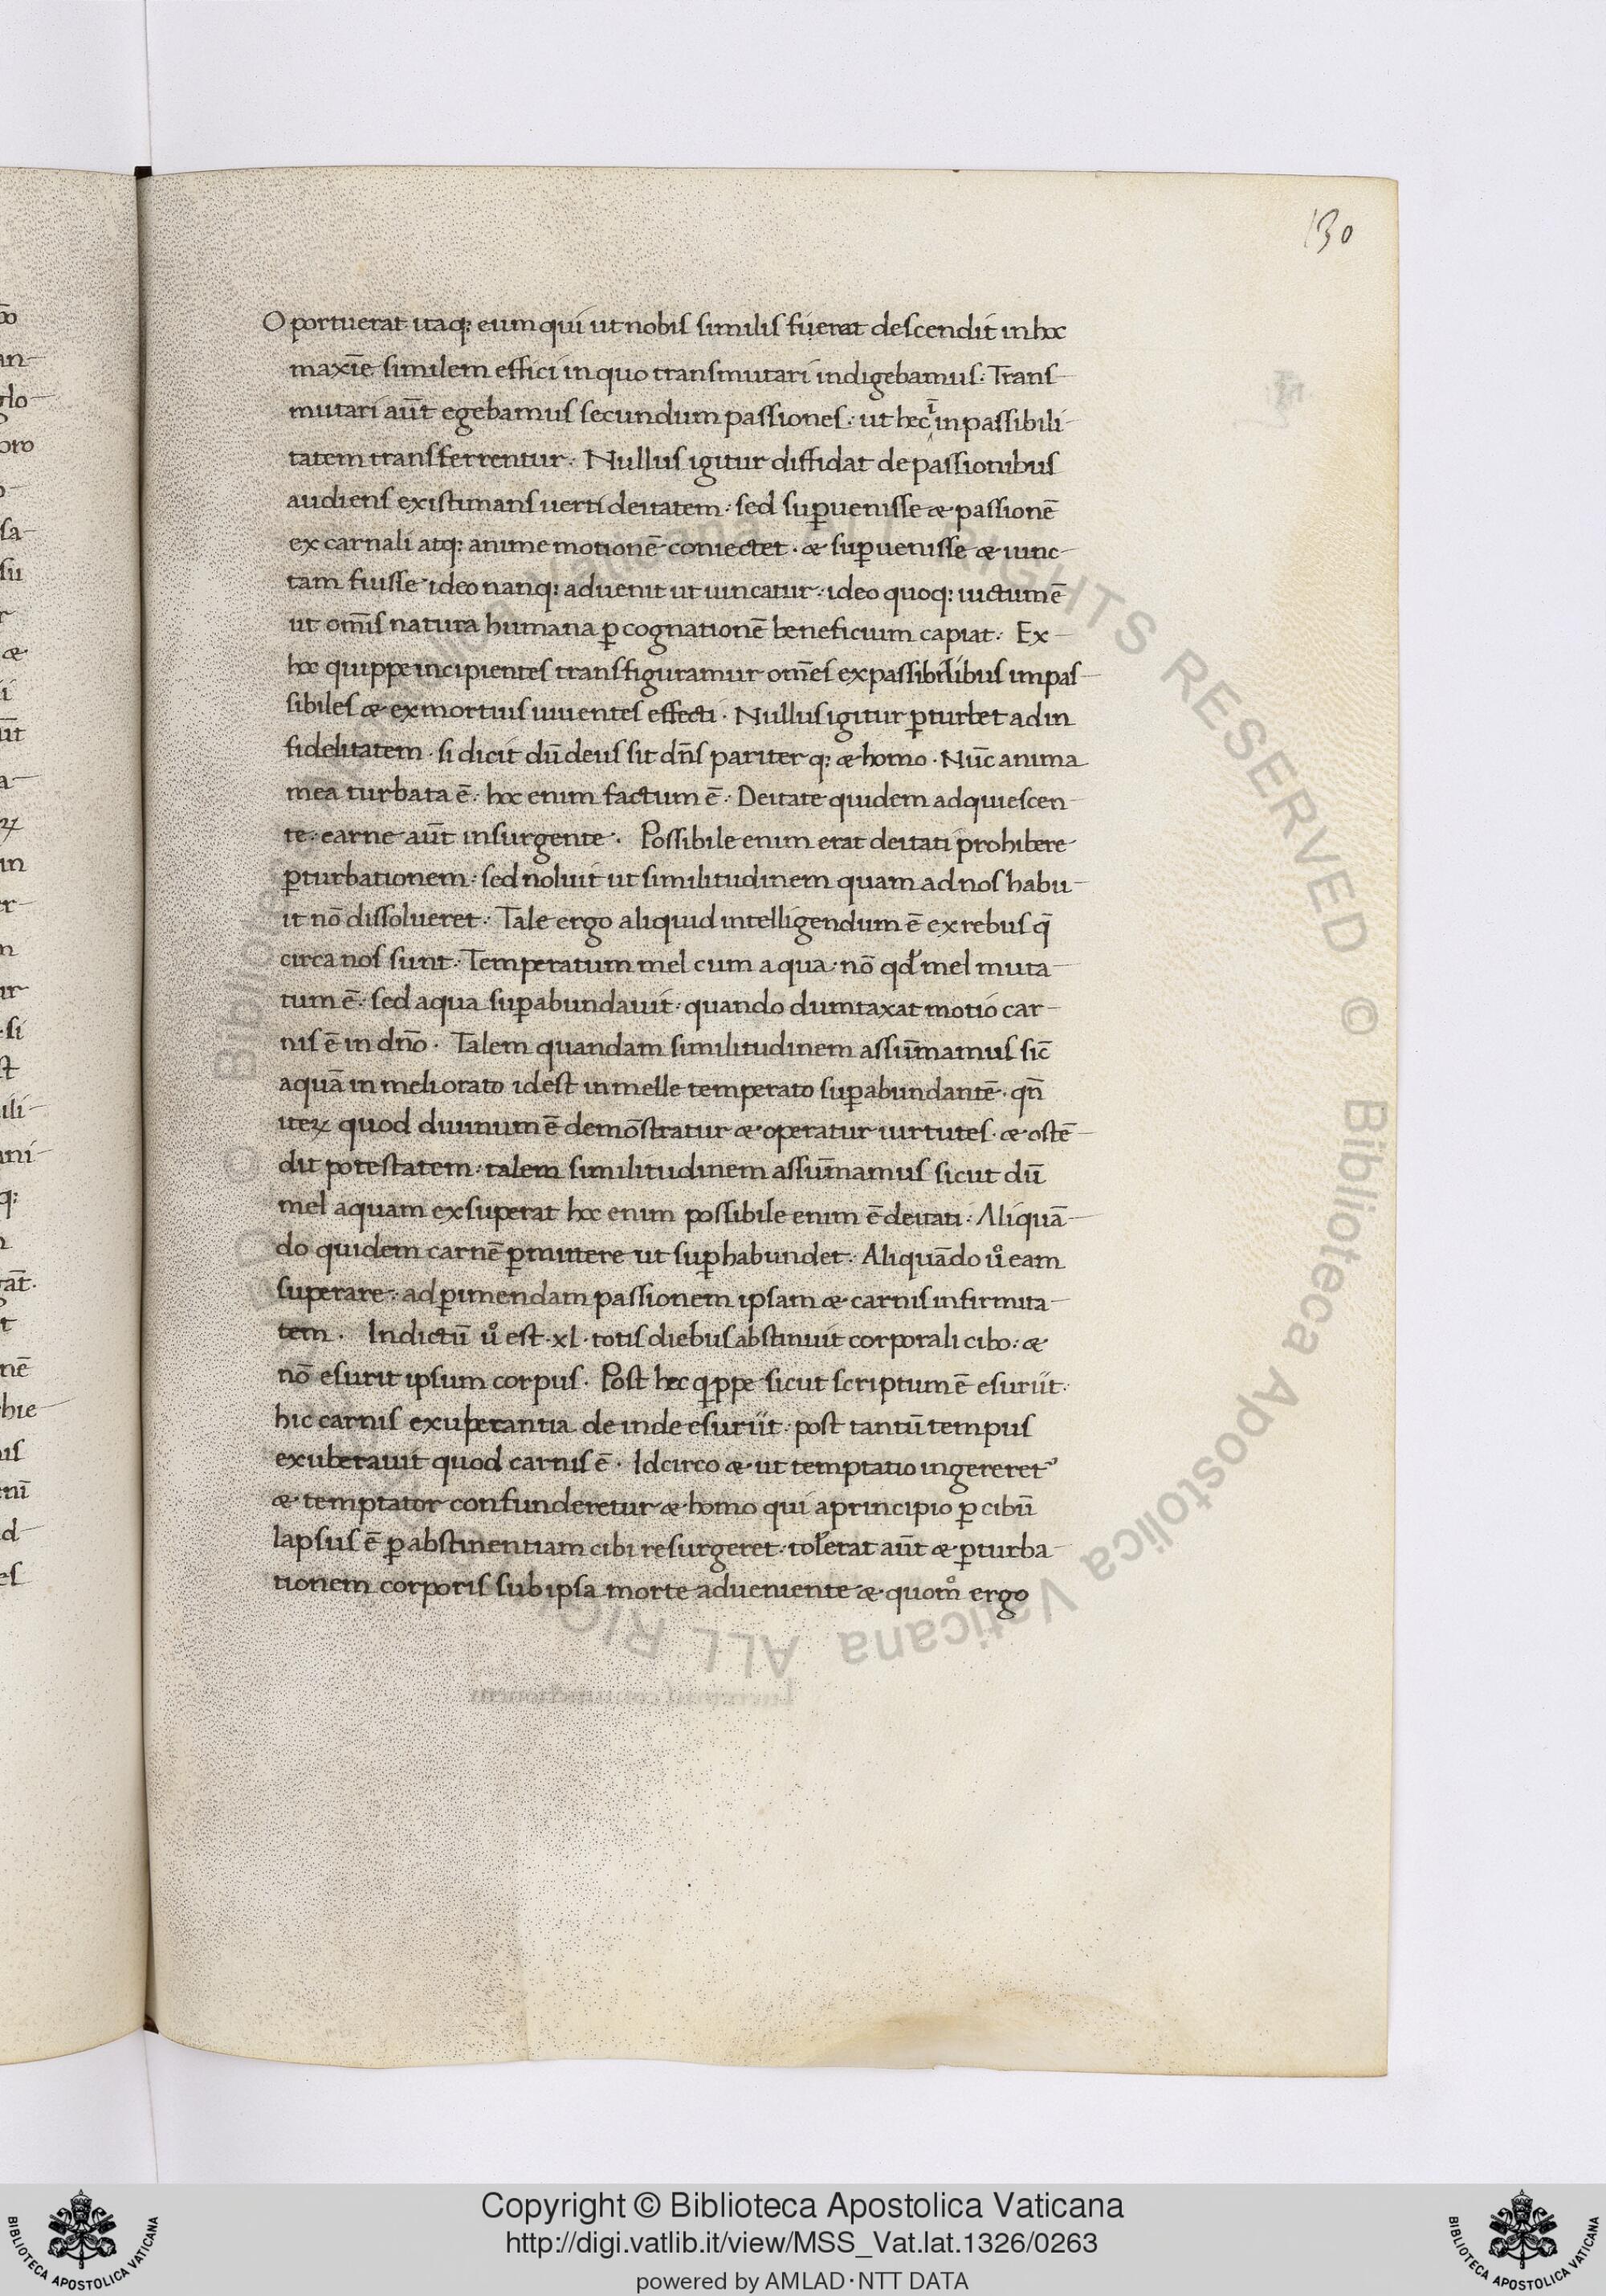 130
Oportuerat itaq: eum qui ut nobis similis fuerat descendit in hoc
maxīe similem effici in quo transmutari indigebamus. Trans-
mutari aūt egebamus secundum passiones. ut hęc ī inpassibili-
tatem transferrentur. Nullus igitur diffidat de passionibus
audiens existimans uerti deitatem. sed sup̱uenisse & passionē
ex carnali atq: anime motionē coniectet. & sup̱uenisse & uinc-
tam fuisse ideo nanq: aduenit ut uincatur. ideo quoq: iuctum ē
ut om̄is natura humana p̱ cognationē beneficium capiat. Ex
hoc quippe incipientes transfiguramur om̄es ex passibilibus impas-
sibiles & ex mortuis uiuentes effecti. Nullus igitur p̱turbet ad in
fidelitatem. si dicit dū deus sit dn̄s pariter q: & homo. Nūc anima
mea turbata ē. hoc enim factum ē. Deitate quidem adquiescen-
te. carne aūt insurgente. Possibile enim erat deitati prohibere
p̱turbationem. sed noluit ut similitudinem quam ad nos habu-
it nō dissolueret. Tale ergo aliquid intelligendum ē ex rebus q̄
circa nos sunt. Temperatum mel cum aqua. nō qđ mel muta-
tum ē. sed aqua sup̱abundauit. quando dumtaxat motio car-
nis ē in dn̄o. Talem quandam similitudinem assum̄amus sic̄
aquā in meliorato idest in melle temperato sup̱abundantē. qn̄
iteꝝ quod diuinum ē demōstratur & operatur uirtutes. & ostē-
dit potestatem. talem similitudinem assum̄amus sicut dū
mel aquam exsuperat hoc enim possibile enim ē deitati. Aliquā-
do quidem carnē p̱mittere ut sup̱habundet. Aliquādo u̓o eam
superare. ad p̱imendam passionem ipsam & carnis infirmita-
tem. Indictū u̓o est .xl. totis diebus abstinuit corporali cibo. &
nō esurit ipsum corpus. Post hęc q̓ppe sicut scriptum ē esuriit.
hic carnis exuperantia deinde esuriit. post tantū tempus
exuberauit quod carnis ē. Idcirco & ut temptatio ingereret᾽
& temptator confunderetur & homo qui a principio p̱ cibū
lapsus ē p̱ abstinentiam cibi resurgeret. tol̓erat aūt & p̱turba-
tionem corporis sub ipsa morte adueniente & quom̊ ergo
Copyright © Biblioteca Apostolica Vaticana
http://digi.vatlib.it/view/MSS_Vat.lat.1326/0263
powered by AMLAD·NTT DATA